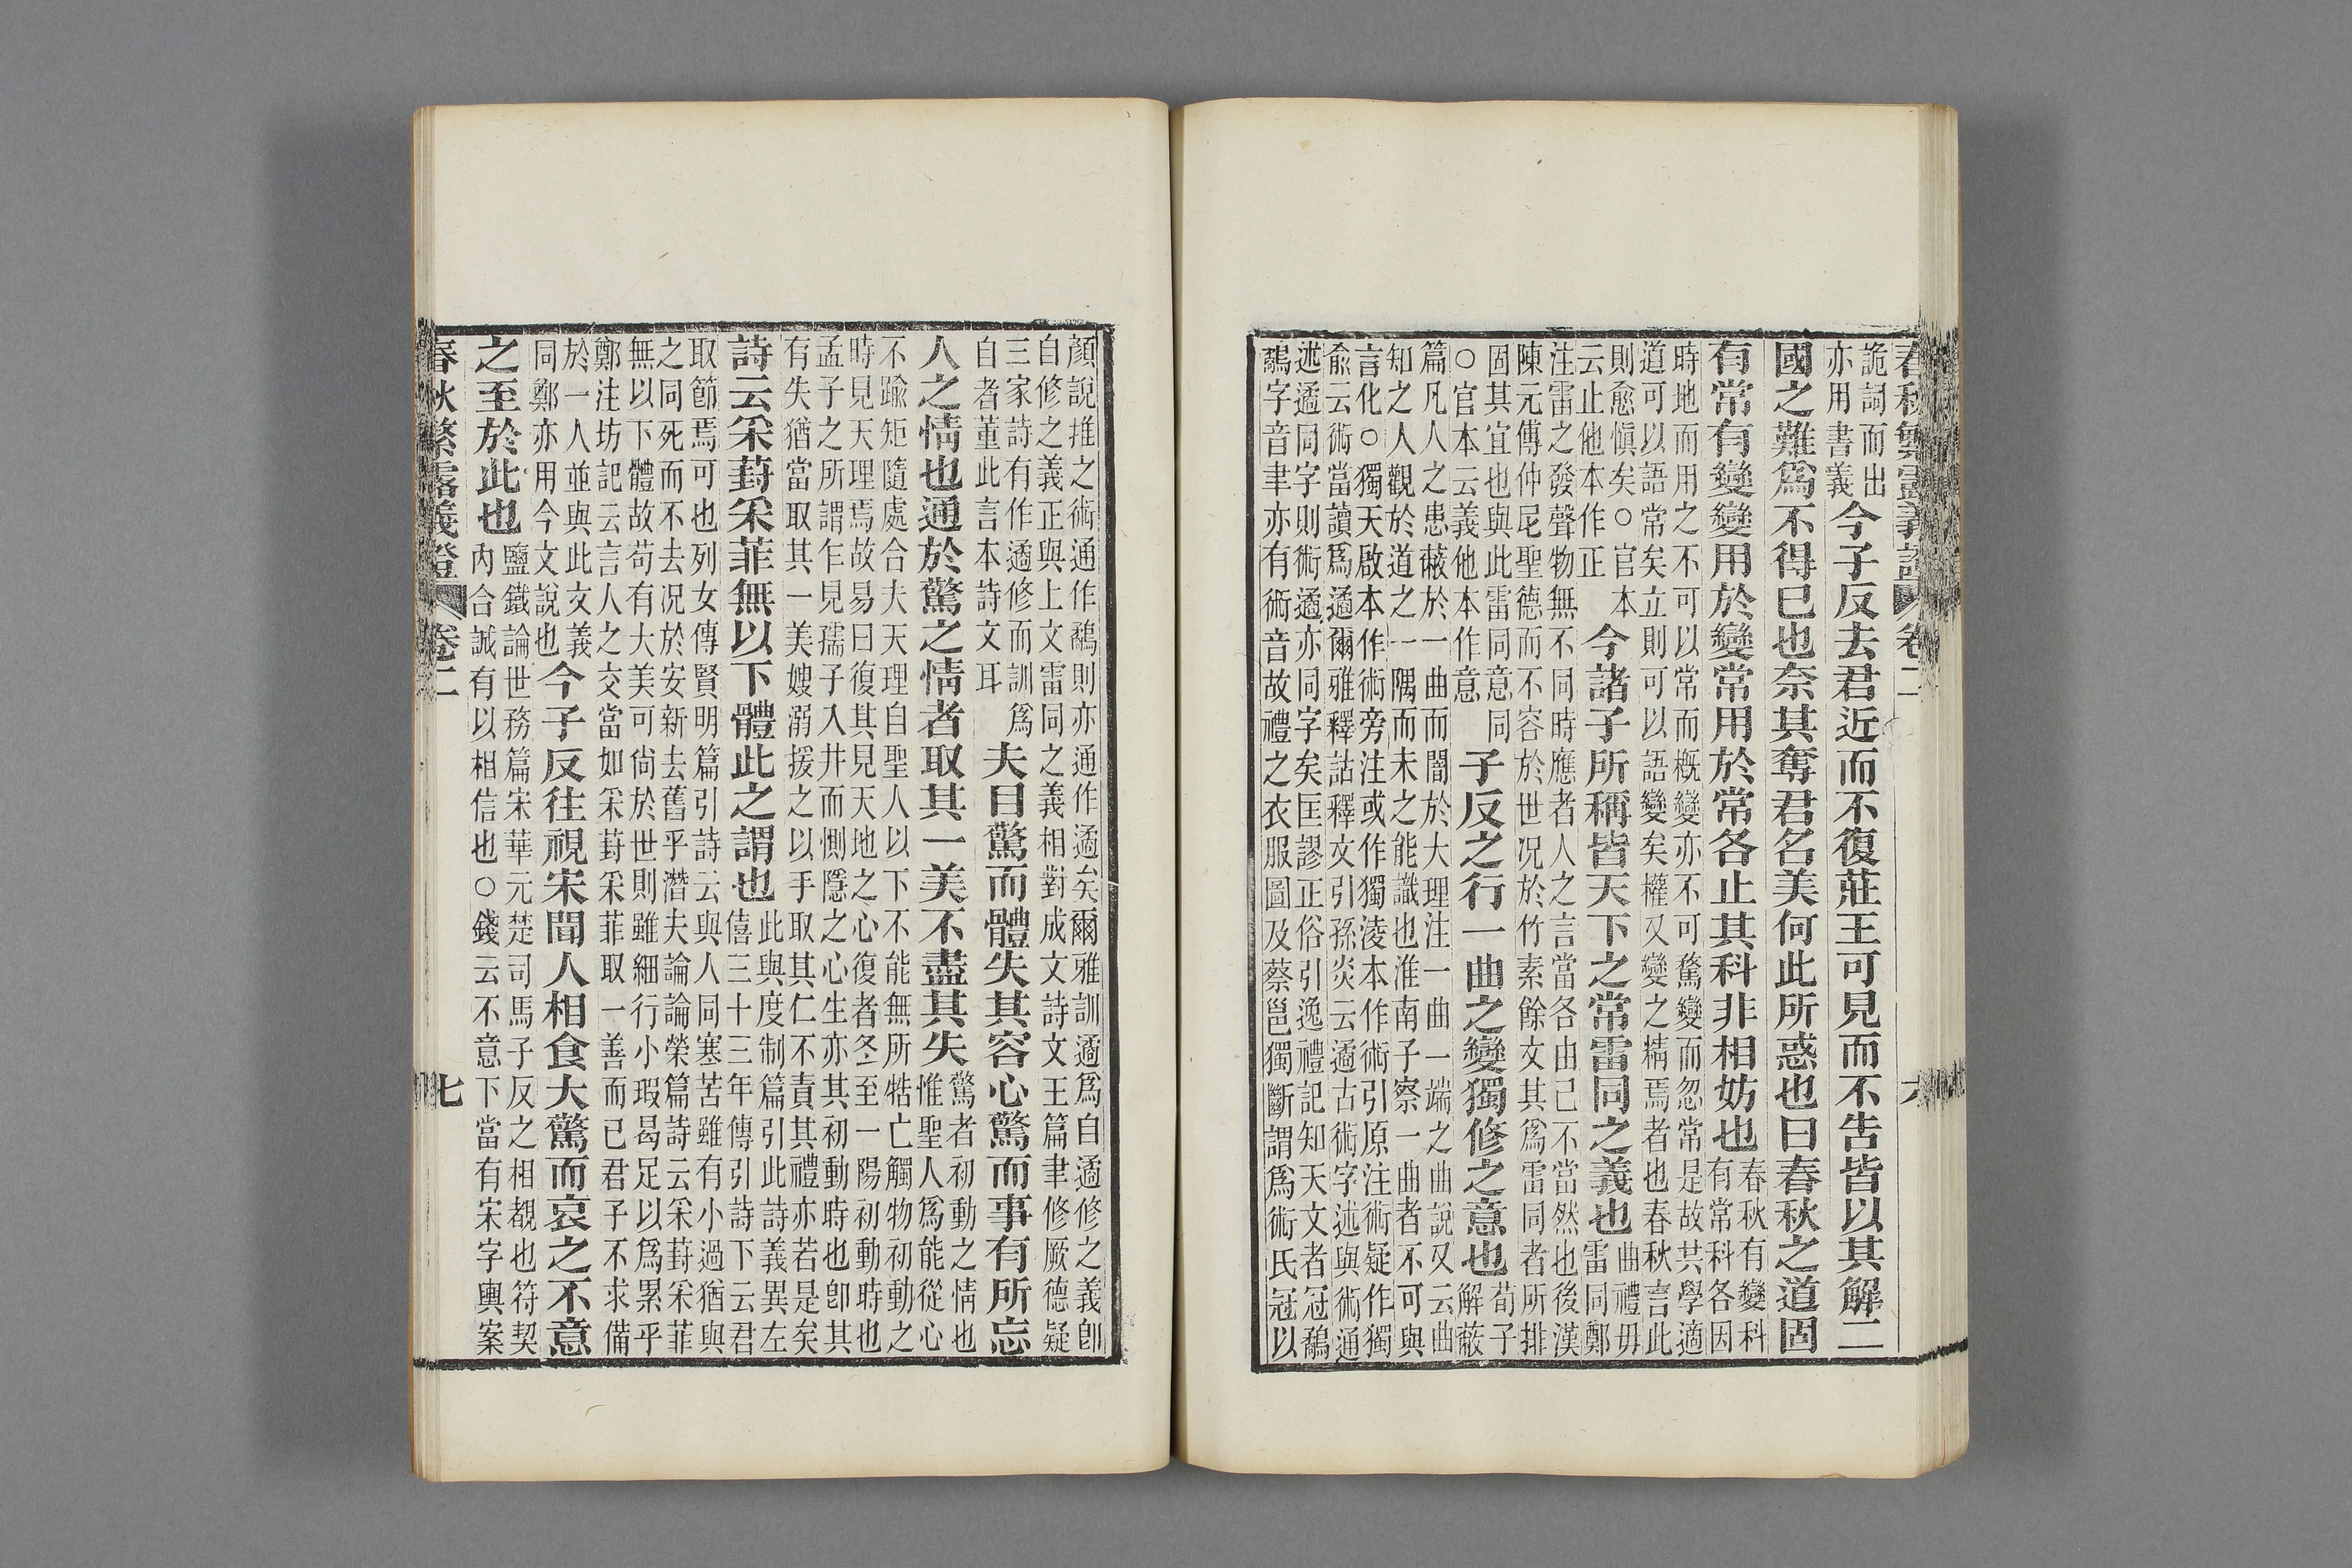 春秋繁露義證 卷二 六
詭詞而出亦用書義今子反去君近而不復莊王可見而不告皆以其解二
國之難爲不得已也奈其奪君名美何此所惑也曰春秋之道固
有常有變變用於變常用於常各止其科非相妨也春秋有變科有常科各因
時地而用之不可以常而概變亦不可騖變而忽常是故共學適
道可以語常矣立則可以語變矣權又變之精焉者也春秋言此
則愈愼矣○官本云止他本作正今諸子所稱皆天下之常雷同之義也曲禮毋雷同鄭
注雷之發聲物無不同時應者人之言當各由己不當然也後漢
陳元傳仲尼聖德而不容於世况於竹素餘文其爲雷同者所排
固其宜也與此雷同意同○官本云義他本作意子反之行一曲之變獨修之意也荀子解蔽
篇凡人之患蔽於一曲而闇於大理注一曲一端之曲說又云曲
知之人觀於道之一隅而未之能識也淮南子察一曲者不可與
言化○獨天啟本作術旁注或作獨淩本作術引原注術疑作獨
俞云術當讀爲遹爾雅釋詁釋文引孫炎云遹古術字述與術通
述遹同字則術遹亦同字矣匡謬正俗引逸禮記知天文者冠鷸
鷸字音聿亦有術音故禮之衣服圖及蔡邕獨斷謂爲術氏冠以
顏說推之術通作鷸則亦通作遹矣爾雅訓遹爲自遹修之義卽
自修之義正與上文雷同之義相對成文詩文王篇聿修厥德疑
三家詩有作遹修而訓爲自者董此言本詩文耳夫目驚而體失其容心驚而事有所忘
人之情也通於驚之情者取其一美不盡其失驚者初動之情也惟聖人爲能從心
不踰矩隨處合夫天理自聖人以下不能無所牿亡觸物初動之
時見天理焉故易曰復其見天地之心復者冬至一陽初動時也
孟子之所謂乍見孺子入井而惻隱之心生亦其初動時也卽其
有失猶當取其一美嫂溺援之以手取其仁不責其禮亦若是矣
詩云采葑采菲無以下體此之謂也此與度制篇引此詩義異左僖三十三年傳引詩下云君
取節焉可也列女傳賢明篇引詩云與人同寒苦雖有小過猶與
之同死而不去况於安新去舊乎潛夫論論榮篇詩云采葑采菲
無以下體故苟有大美可尙於世則雖細行小瑕曷足以爲累乎
鄭注坊記云言人之交當如采葑采菲取一善而已君子不求備
於一人並與此文義同鄭亦用今文說也今子反往視宋閒人相食大驚而哀之不意
之至於此也鹽鐵論世務篇宋華元楚司馬子反之相覩也符契
內合誠有以相信也○錢云不意下當有宋字輿案
春秋繁露義證 卷二 七